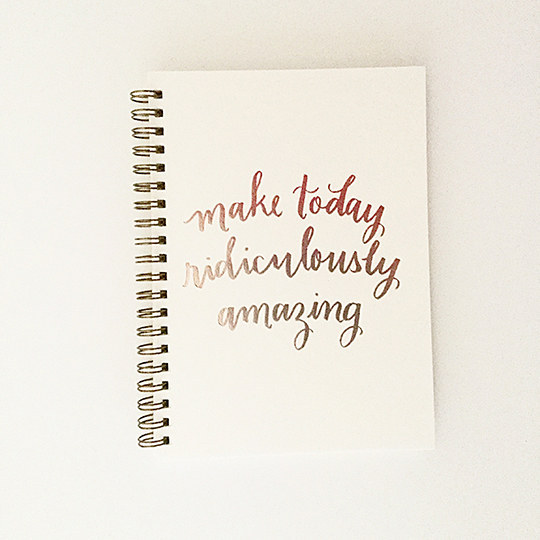 make today
ridiculously
amazing